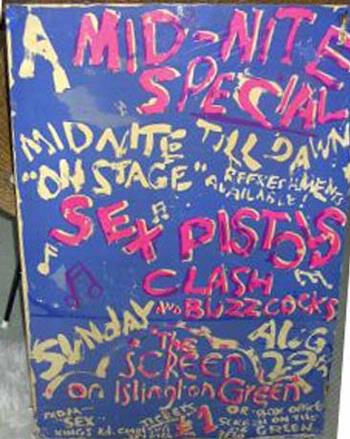 A MID-NITE
SPECIAL
MIDNITE TILL DAWN
"ON STAGE" REFRESHMENTS
AVAILABLE!
SEX PISTOLS
CLASH
AND BUZZCOCKS
SUNDAY AUG
The 29
SCREEN
on Islington Green
FROM— TICKETS OR BOX OFFICE
SEX— £1 SCREEN ON THE
KINGS Rd. GREEN